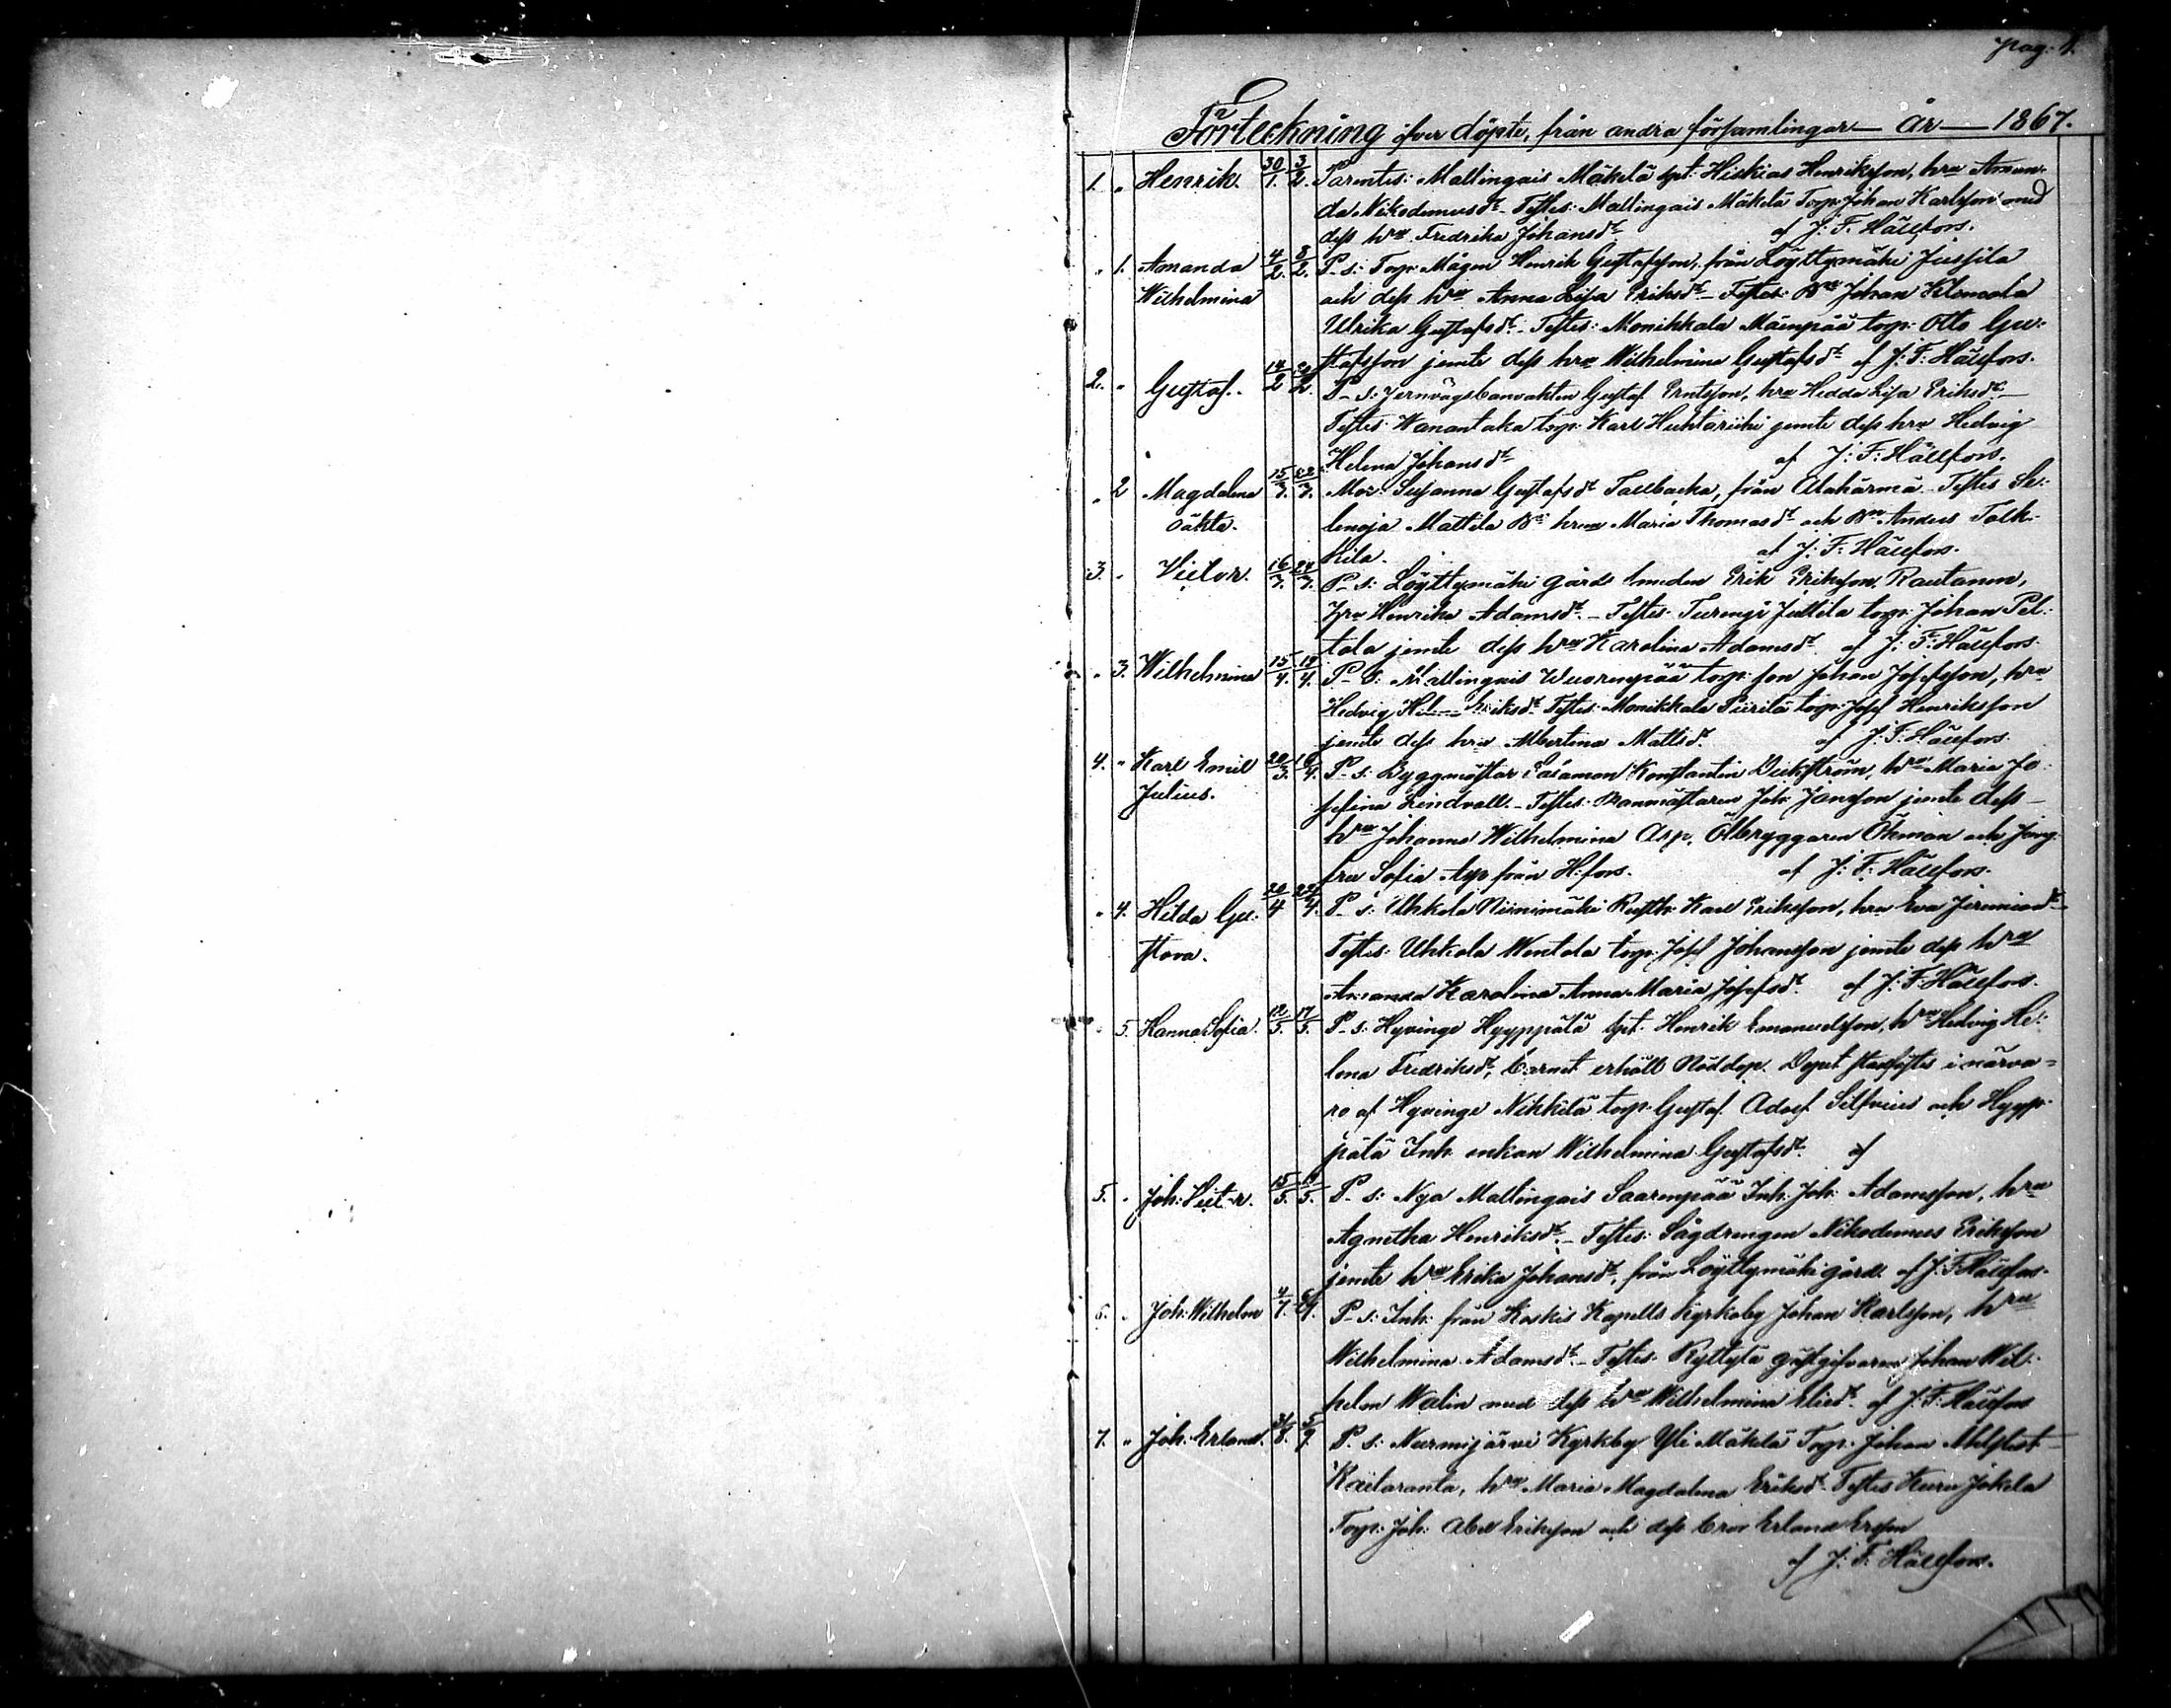 pag. 1.
Förteckning öfver döpte, från andra församlingar — år — 1867.
1. " Henrik. 30/1. 3/2. Parentes: Mallingais Mäkelä Hiskias Henriksson, hru Aman-
da Nikodemusdr. Testes: Mallingais Mäkelä Torp. Johan Karlsson med
dess hru Fredrika Johansdr af J. F. Hällfors.
" 1. Amanda 4/2. 3/2. P-s: Torp. Mågen Henrik Gustafsson, från Löyttymäki Jussila
Wilhelmina och dess hru Anna Lisa Eriksdr Johan
Ulrika Gustafsdr. Testes: Monikkala Mäenpää torp. Otto Gu-
stafsson jemte dess hru Wilhelmina Gustafsdr af J. F. Hällfors.
2. " Gustaf. 14/2 P-s: Jernvägsbanvakten Gustaf Erntsson, hru Hedda Lisa Eriksdr
Testes: Wanantaka torp. Karl Huhtariihi jemte dess hru Hedvig
Helena Johansdr af J: F: Hällfors.
" 2 Magdalena 15/3. Mor: Susanna Gustafsdr Tallbacka, från Alahärmä. Testes
oäkta. Mattila hrun Maria Thomasdr och Anders Talk-
kila. af J. F. Hällfors.
3. " Victor. 16/3. 24/3. P-s: Löyttymäki gårds Erik Eriksson Rautanen,
hru Henrika Adamsdr. Testes: Turengi Juttila torp. Johan Pel-
tola jemte dess hru Karolina Adamsdr af J: F: Hällfors.
" 3. Wilhelmina 15/4. 19/4. P-s: Mallingais Wuorenpää torp. son Johan Josefsson, hru
Hedvig Eriksdr Testes: Monikkala Piirilä torp. Josef Henriksson
jemte dess hru Albertina Mattsdr. af J. F. Hällfors.
4. " Karl Emil 20/3. P-s: Byggmästar Salamon Konstantin hru Maria Jo-
Julius. sefina Lindvall. Testes: Banmästaren Joh: Jansson jemte dess
hru Johanna Wilhelmina Asp, Ölbryggaren Öhman och Jung-
fru Sofia Asp från H:fors. af J. F. Hällfors.
" 4. Hilda Gu- 20/4 22/4. P-s: Uhkola Niinimäki Karl Eriksson, hru Eva Jeremiasdr
stava. Testes: Uhkola Wentola torp. Josef Johansson jemte dess hru
Amanda Karolina Anna Maria Josefsdr. af J. F. Hällfors.
" 5. Hanna Sofia. 12/5. 17/5. P-s: Hyvinge Hyyppälä Henrik Emanuelsson, hru Hedvig He-
lena Fredriksdr, barnet erhöll Nöddop. Dopet stadfästes i närva-
ro af Hyvinge Nikkilä torp. Gustaf Adolf Silfvius och Hyyp-
pälä Inh. enkan Wilhelmina Gustafsdr. af
5. " Joh: Vict-r. 15/5. 19/5. P-s: Nya Mallingais Saarenpää Inh: Joh: Adamsson, hru
Agnetha Henriksdr. Testes: Sågdrengen Nikodemus Eriksson
jemte hru Erika Johansdr, från Löyttymäki gård. af J. F. Hällfors.
6. " Joh: Wilhelm 4/7. P-s: Inh: från Koskis Kapells kyrkoby Johan Karlsson, hru
Wilhelmina Adamsdr. Testes: Ryttylä gästgifvaren Johan Wil-
helm Walin med dess hru Wilhelmina Eliedr. af J. F. Hällfors
7. " Joh: Erland. 31/8. 5/9. P. s: Nurmijärvi Kyrkby Yli Mäkelä Torp. Johan
Raitaranta, hru Maria Magdalena Eriksdr. Testes Jokela
Torp. Joh: Abel Eriksson och dess bror Erland Ersson
af J. F. Hällfors.